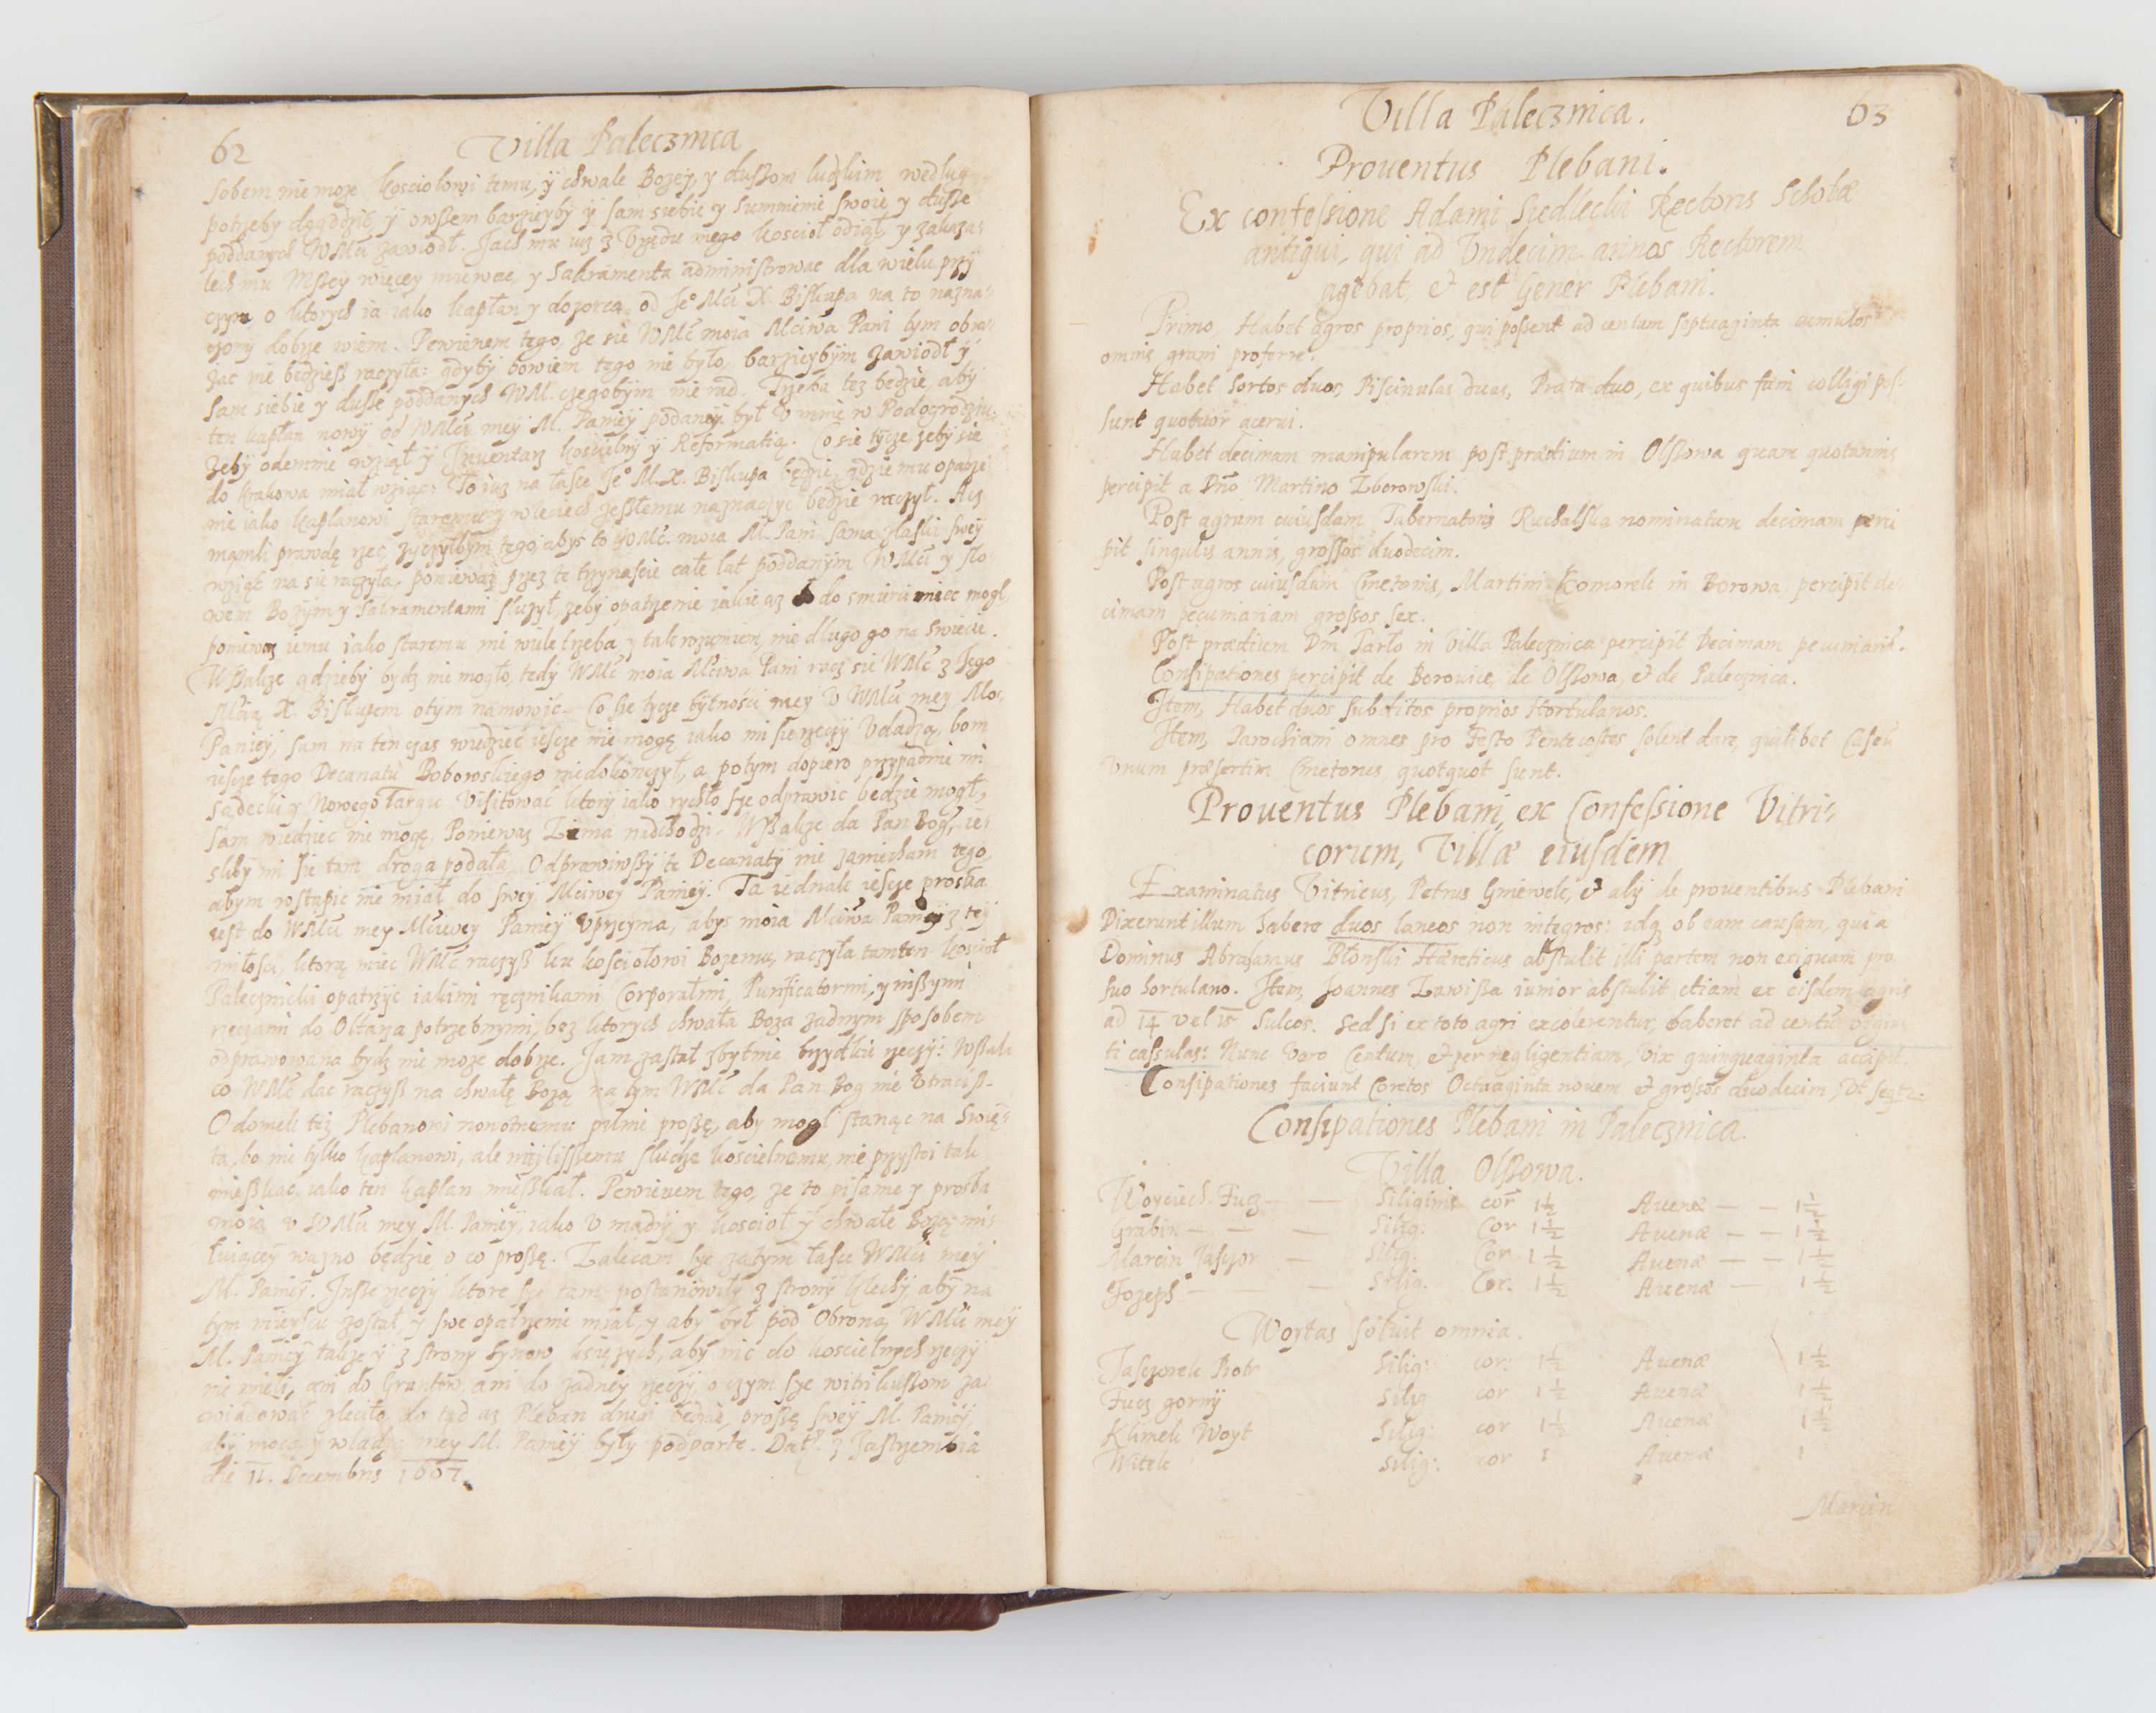 62
Villa Palecznica
sobem nie moze kosciołowi temu, ÿ chwale Bozeÿ, y dusszom ludzkim według
potrzeby dogodzić, ÿ owszem barzieyby ÿ sam siebie y summienie swoie y dusse
poddanych WMći zawiodł. Jach mu iuz z Vrzędu mego koscioł odiął, y zakaza-
lech mu Msszey więcey miewac, y Sakramenta administrowac dla wielu przÿ
czyn, o ktorych ia iako kapłan y dozorca od Je° Mći X. Biskupa na to nazna-
czonÿ dobrze wiem. Pewienem tego, ze sie WMć moia Mćiwa Pani tym obra-
zac nie bedziesz raczyła: gdyby bowiem tego nie było, barzieybÿm zawiodł ÿ
sam siebie y dusse poddanych WM. czegobÿm nie rad. Trzeba tez bedzie, aby
ten kapłan nowÿ od WMći meÿ M. Paniey podaneÿ był v mnie w Podogrodziu,
zeby odemnie wziął ÿ Jnwentarz koscielny ÿ Reformatią. Co sie tycze, zeby sie
do Krakowa miał wziąc: To iuz na łasce Je° M.X. Biskupa będzie, gdzie mu opatrze
nie iako kapłanowi staremu y w leciech zeszłemu naznaczyc bedzie raczył. Acz
mamli prawdę rzec, zyczyłbym tego, abys to WMć. moia M. Pani sama z łaski sweÿ
wziąc na sie raczyła, poniewaz przez te trzynascie całe lat poddanÿm WMći y sło-
wem Bozym y Sakramentami sluzył, zeby opatrzenie iakie az do smierci miec mogł,
poniewaz iemu iako staremu nie wiele trzeba, y tak rozumiem, nie długo go na swiecie.
Wszakze gdzieby bydz nie mogło, tedy WMć moia Mćiwa Pani racz sie WMć z Jego
Mćią X. Biskupem otym namowić. Co sie tycze bÿtnosci meÿ v WMći meÿ Mo-
Panieÿ, sam na ten czas wiedzieć iesce nie mogę iako mi sie rzeczÿ vdadzą, bom
iesce tego Decanatu Boboroskiego nie dokonczył, a potym dopiero przypadnie mi
Sądecki y Nowego Targu Visitować ktorÿ iako rychło sye odprawic bedzie mogł,
sam wiedziec nie mogę, Poniewaz Zima nadchodzi. Wszakze da Pan Bog, ie-
sliby mi sie tam droga podała, Odprawiwszÿ te Decanatÿ nie zaniecham tego,
abym wstąpic nie miał do sweÿ Mćiweÿ Panieÿ. Ta iednak iesce prosba
iest do WMći mey Mćiwey Panieÿ vprzeyma, abys moia Mćiwa Pani z teÿ
miłosci, ktorą miec WMć raczysz ku kosciołowi Bozemu, raczyła tamten kosciół
Palecznicki opatrzyc iakimi ręcznikami, Corporałmi, Purificatormi, y inszymi
rzeczami do Ołtarza potrzebnymi, bez ktorych chwała Boza zadnym sposobem
odprawowana bydz nie moze dobrze. Jam zastał zbytnie brzydkie rzeczÿ: Wszak
co WMć dac raczysz na chwałę Bozą, na tym WMć da Pan Bog nie vtracisz.
O domek też Plebanowi nowotnemu pilnie proszę, aby mogł stanąc na Swię-
ta, bo nie tylko kapłanowi, ale naÿlisszemu słudze koscielnemu, nie przystoi tak
mieszkac, iako ten kapłan mieszkał. Pewienem tego, ze to pisanie y prosba
moia v WMći mey M. Panieÿ, iako v mądrÿ, y kosciol ÿ chwałe Bozą mi-
łuiąceÿ wazno będzie o co proszę. Zalecam sye zatym łasce WMći meÿ
M. Panieÿ. Insze rzeczÿ ktore sye tam postanowiły z stronÿ klechÿ aby na
tym mieyscu został, y swe opatrzenie miał, y aby był pod Obroną WMći meÿ
M. Panieÿ, takze ÿ z strony synow księzych, aby nic do koscielnych rzeczÿ
nie mieli, ani do Gruntow, ani do zadneÿ rzeczÿ, o czym sye witrikuszom za-
wiadować zleciło, do tąd az Pleban drugi będzie, proszę sweÿ M. Panieÿ,
aby mocą y władzą mey M. Panieÿ były podparte. Dat. z Jastrzembia
die 11. Decembris 1607.
Villa Palecznica.
63
Prouentus Plebani.
Ex confessione Adami Siedlecki Rectoris Scholæ
antiqui, qui ad Vndecim annos Rectorem
agebat, & est Gener Plebani.
Primo, Habet agros proprios, qui possent ad centum septuaginta cumulos
omnis grani proferre.
Habet hortos duos, Piscinulas duas, Prata duo, ex quibus fæni colligi pos-
sunt quatuor acerui.
Habet decimam manipularem post prædium in Olszowa quam quotannis
percipit a Dno Martino Zborowski.
Post agrum cuiusdam Tabernatoris Ruchalska nominatum decimam perci
pit singulis annis, grossos duodecim.
Post agros cuiusdam Cmetonis, Martini Komorek in Borowa percipit de-
cimam pecuniariam grossos sex.
Post prædium Dni Tarło in Villa Palecznica percipit Decimam pecuniariã.
Consipationes percipit de Borowice, de Olszowa, & de Palecznica.
Item, Habet duos subditos proprios Hortulanos.
Item, Parochiani omnes pro Festo Pentecostes solent dare, quilibet Caseũ
vnum præsertim Cmetones, quotquot sunt.
Prouentus Plebani, ex Confessione Vitri-
corum, Villæ eiusdem
Examinatus Vitricus, Petrus Gniewek, & alÿ de prouentibus Plebani
Dixerunt illum habere duos laneos non integros: idq ob eam causam, quia
Dominus Abrahamus Błonski Hæreticus abstulit illi partem non exiguam pro
suo hortulano. Item, Joannes Zawisza iunior abstulit etiam ex eisdem agris
ad 14 vel 15 sulcos. Sed si ex toto agri excolerentur, haberet ad centũ vigin
ti cassulas: Nunc vero Centum, & per negligentiam, vix quinquaginta accipit.
Consipationes faciunt Coretos Octuaginta nouem & grossos duodecim, Vt seqtr.
Consipationes Plebani in Palecznica.
Villa Olszowa.
Woyciech Fucz — — Siliginis cor 1½ Auenæ — — 1½
Grabin — — — Silig: Cor 1½ Auenæ — — 1½
Marcin Jasczor — Silig. Cor 1½ Auenæ — — 1½
Jozeph — — — Silig. Cor. 1½ Auenæ — 1½
Woytas soluit omnia.
Jasczorek Piotr Silig: cor: 1½ Auenæ 1½
Fucz gornÿ Silig cor 1½ Auenæ 1½
Klimek Woyt Silig: cor 1½ Auenæ 1½
Witek Silig: cor 1 Auenæ 1
Marcin